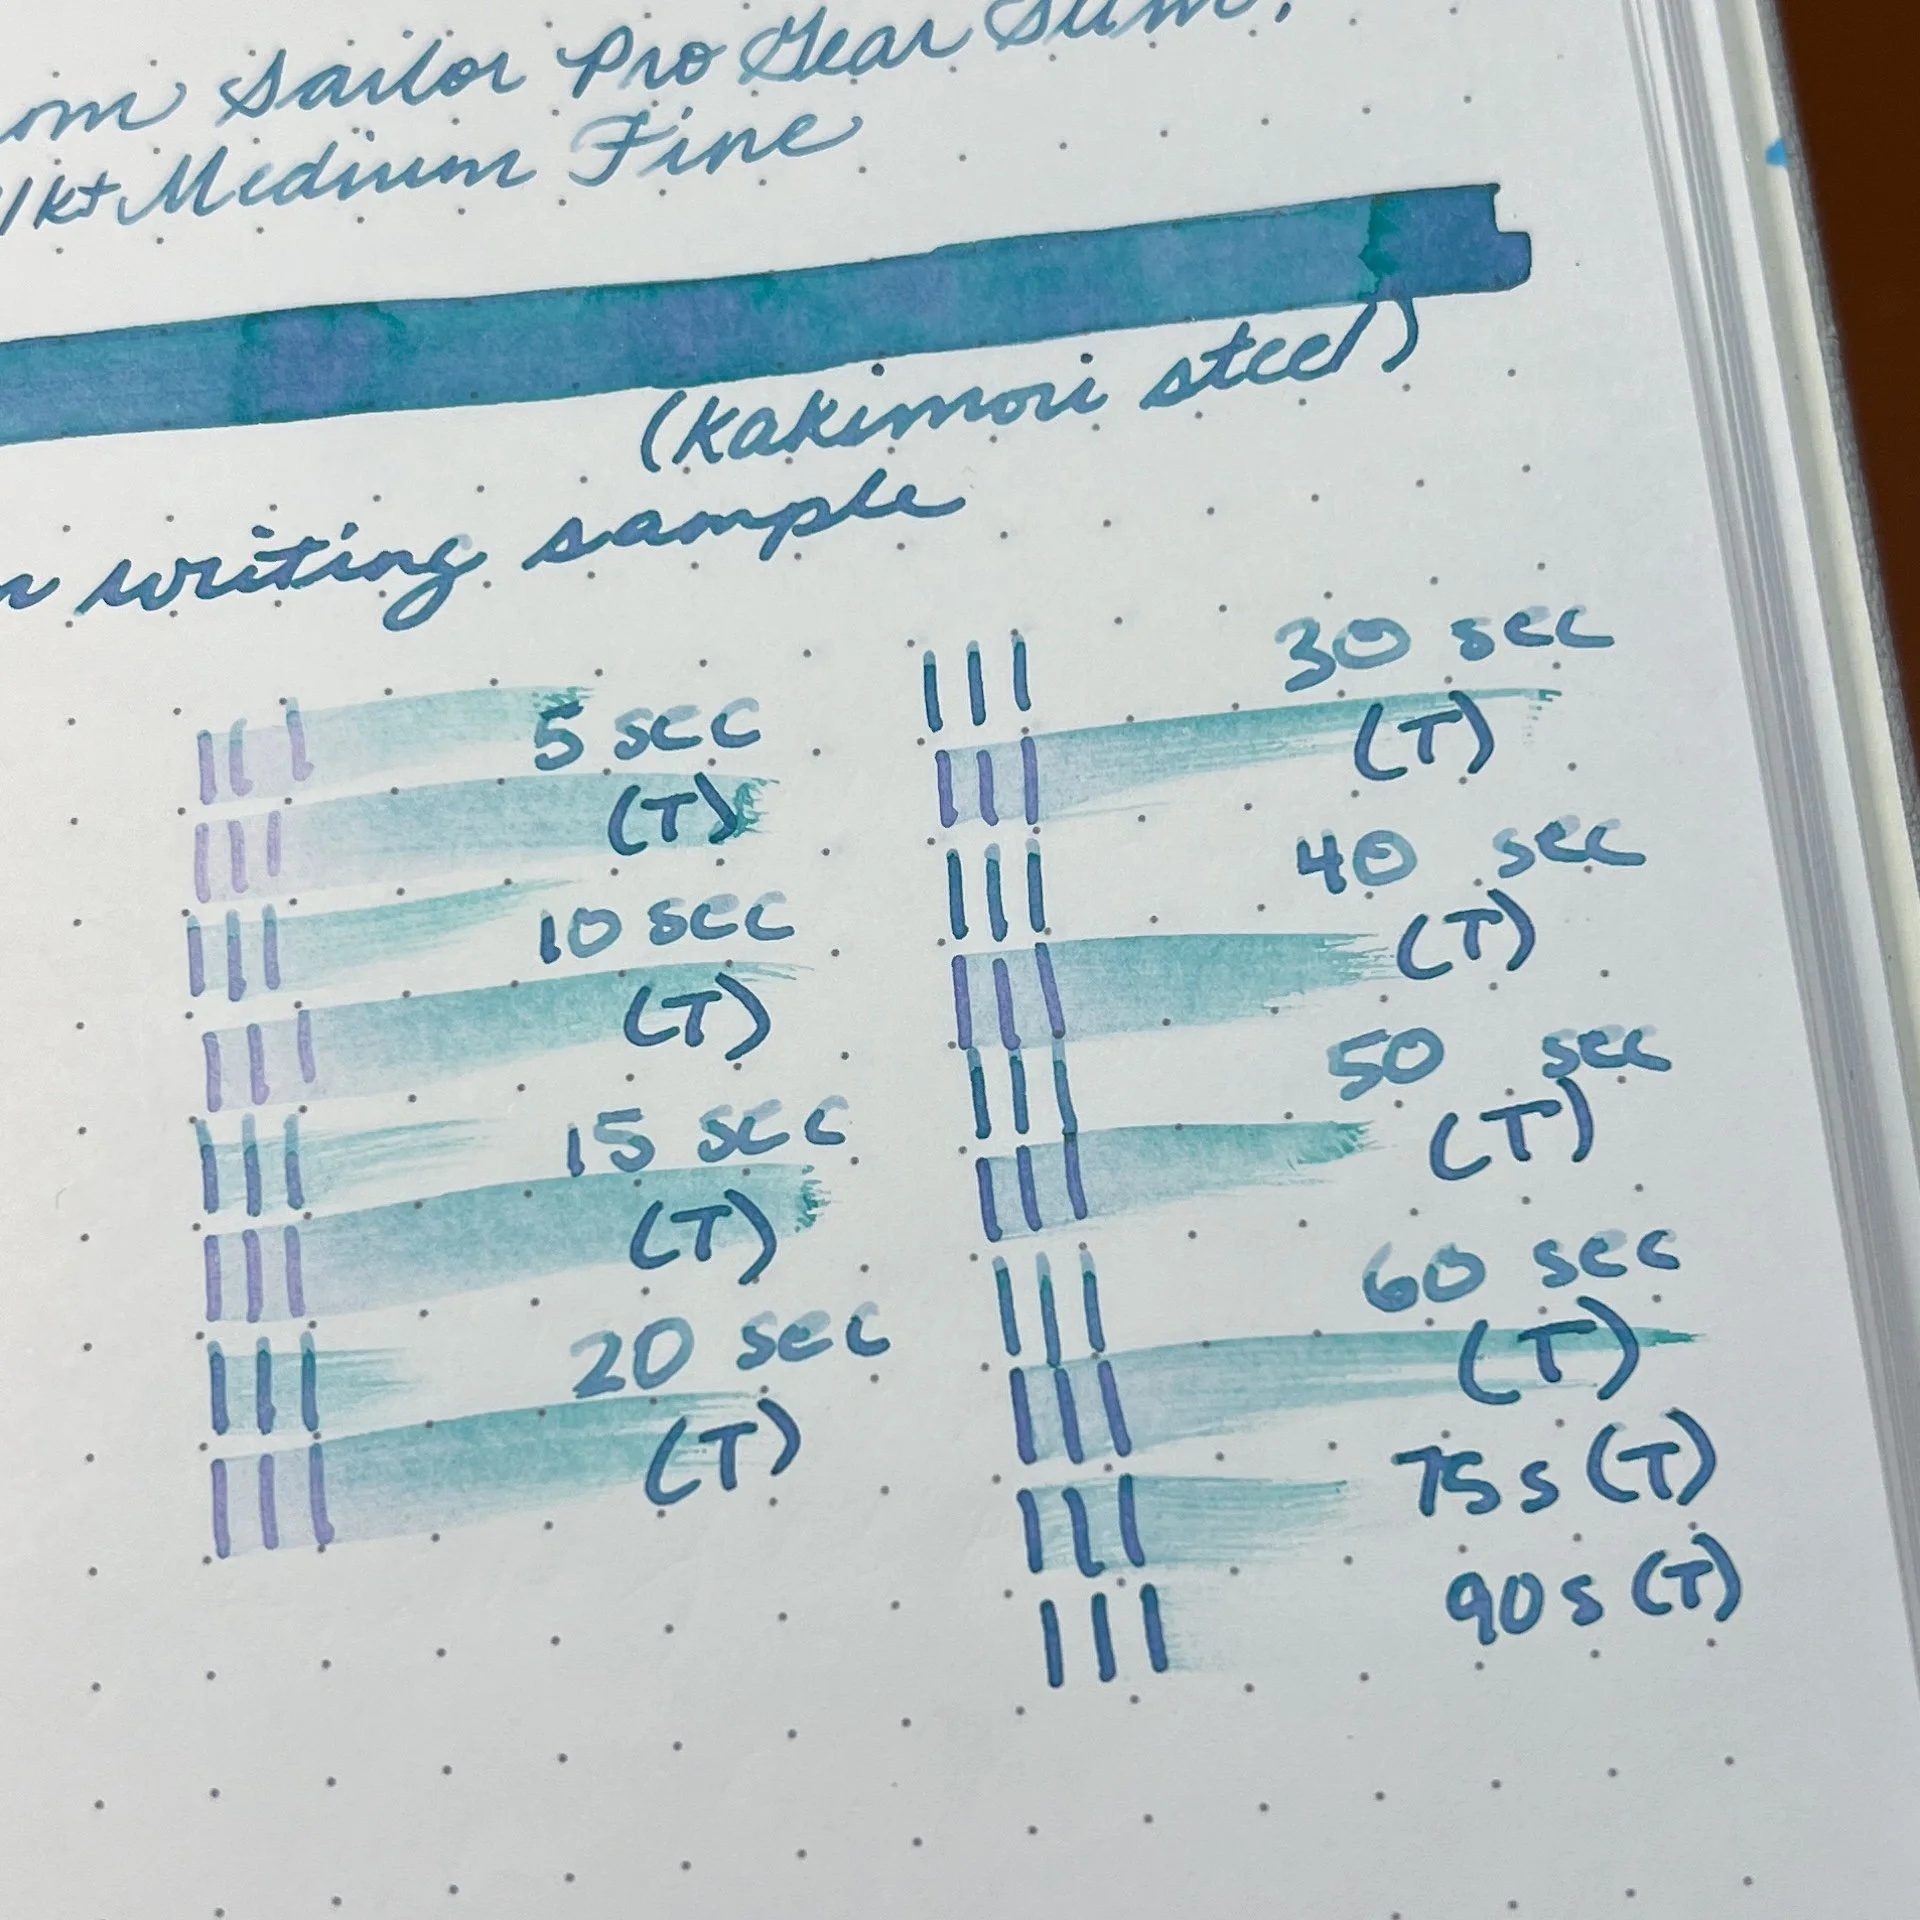 Sailor Pro Gear Slim,
Medium Fine
(Kakimori steel)
writing sample
5 sec
(T)
10 sec
(T)
15 sec
(T)
20 sec
(T)
30 sec
(T)
40 sec
(T)
50 sec
(T)
60 sec
(T)
75 s (T)
90 s (T)